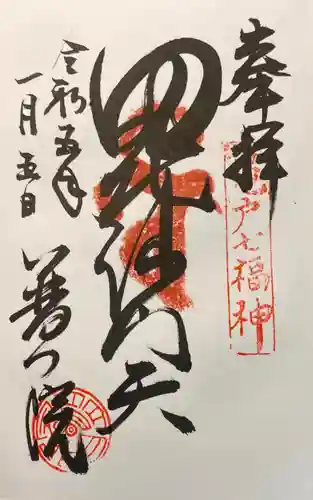 奉拝
亀戸七福神
毘沙門天
令和五年
一月五日
普門院